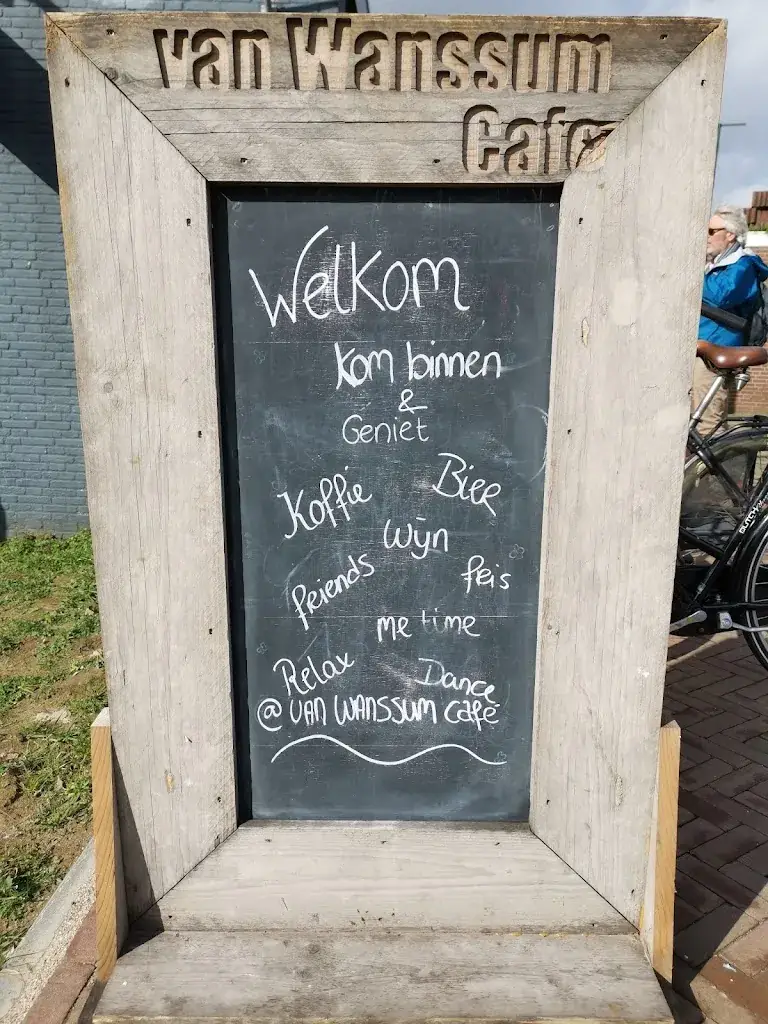 van Wanssum
Cafe
Welkom
Kom binnen
&
Geniet
Koffie Bier
Wijn
friends fris
me time
Relax Dance
@ VAN WANSSUM Café